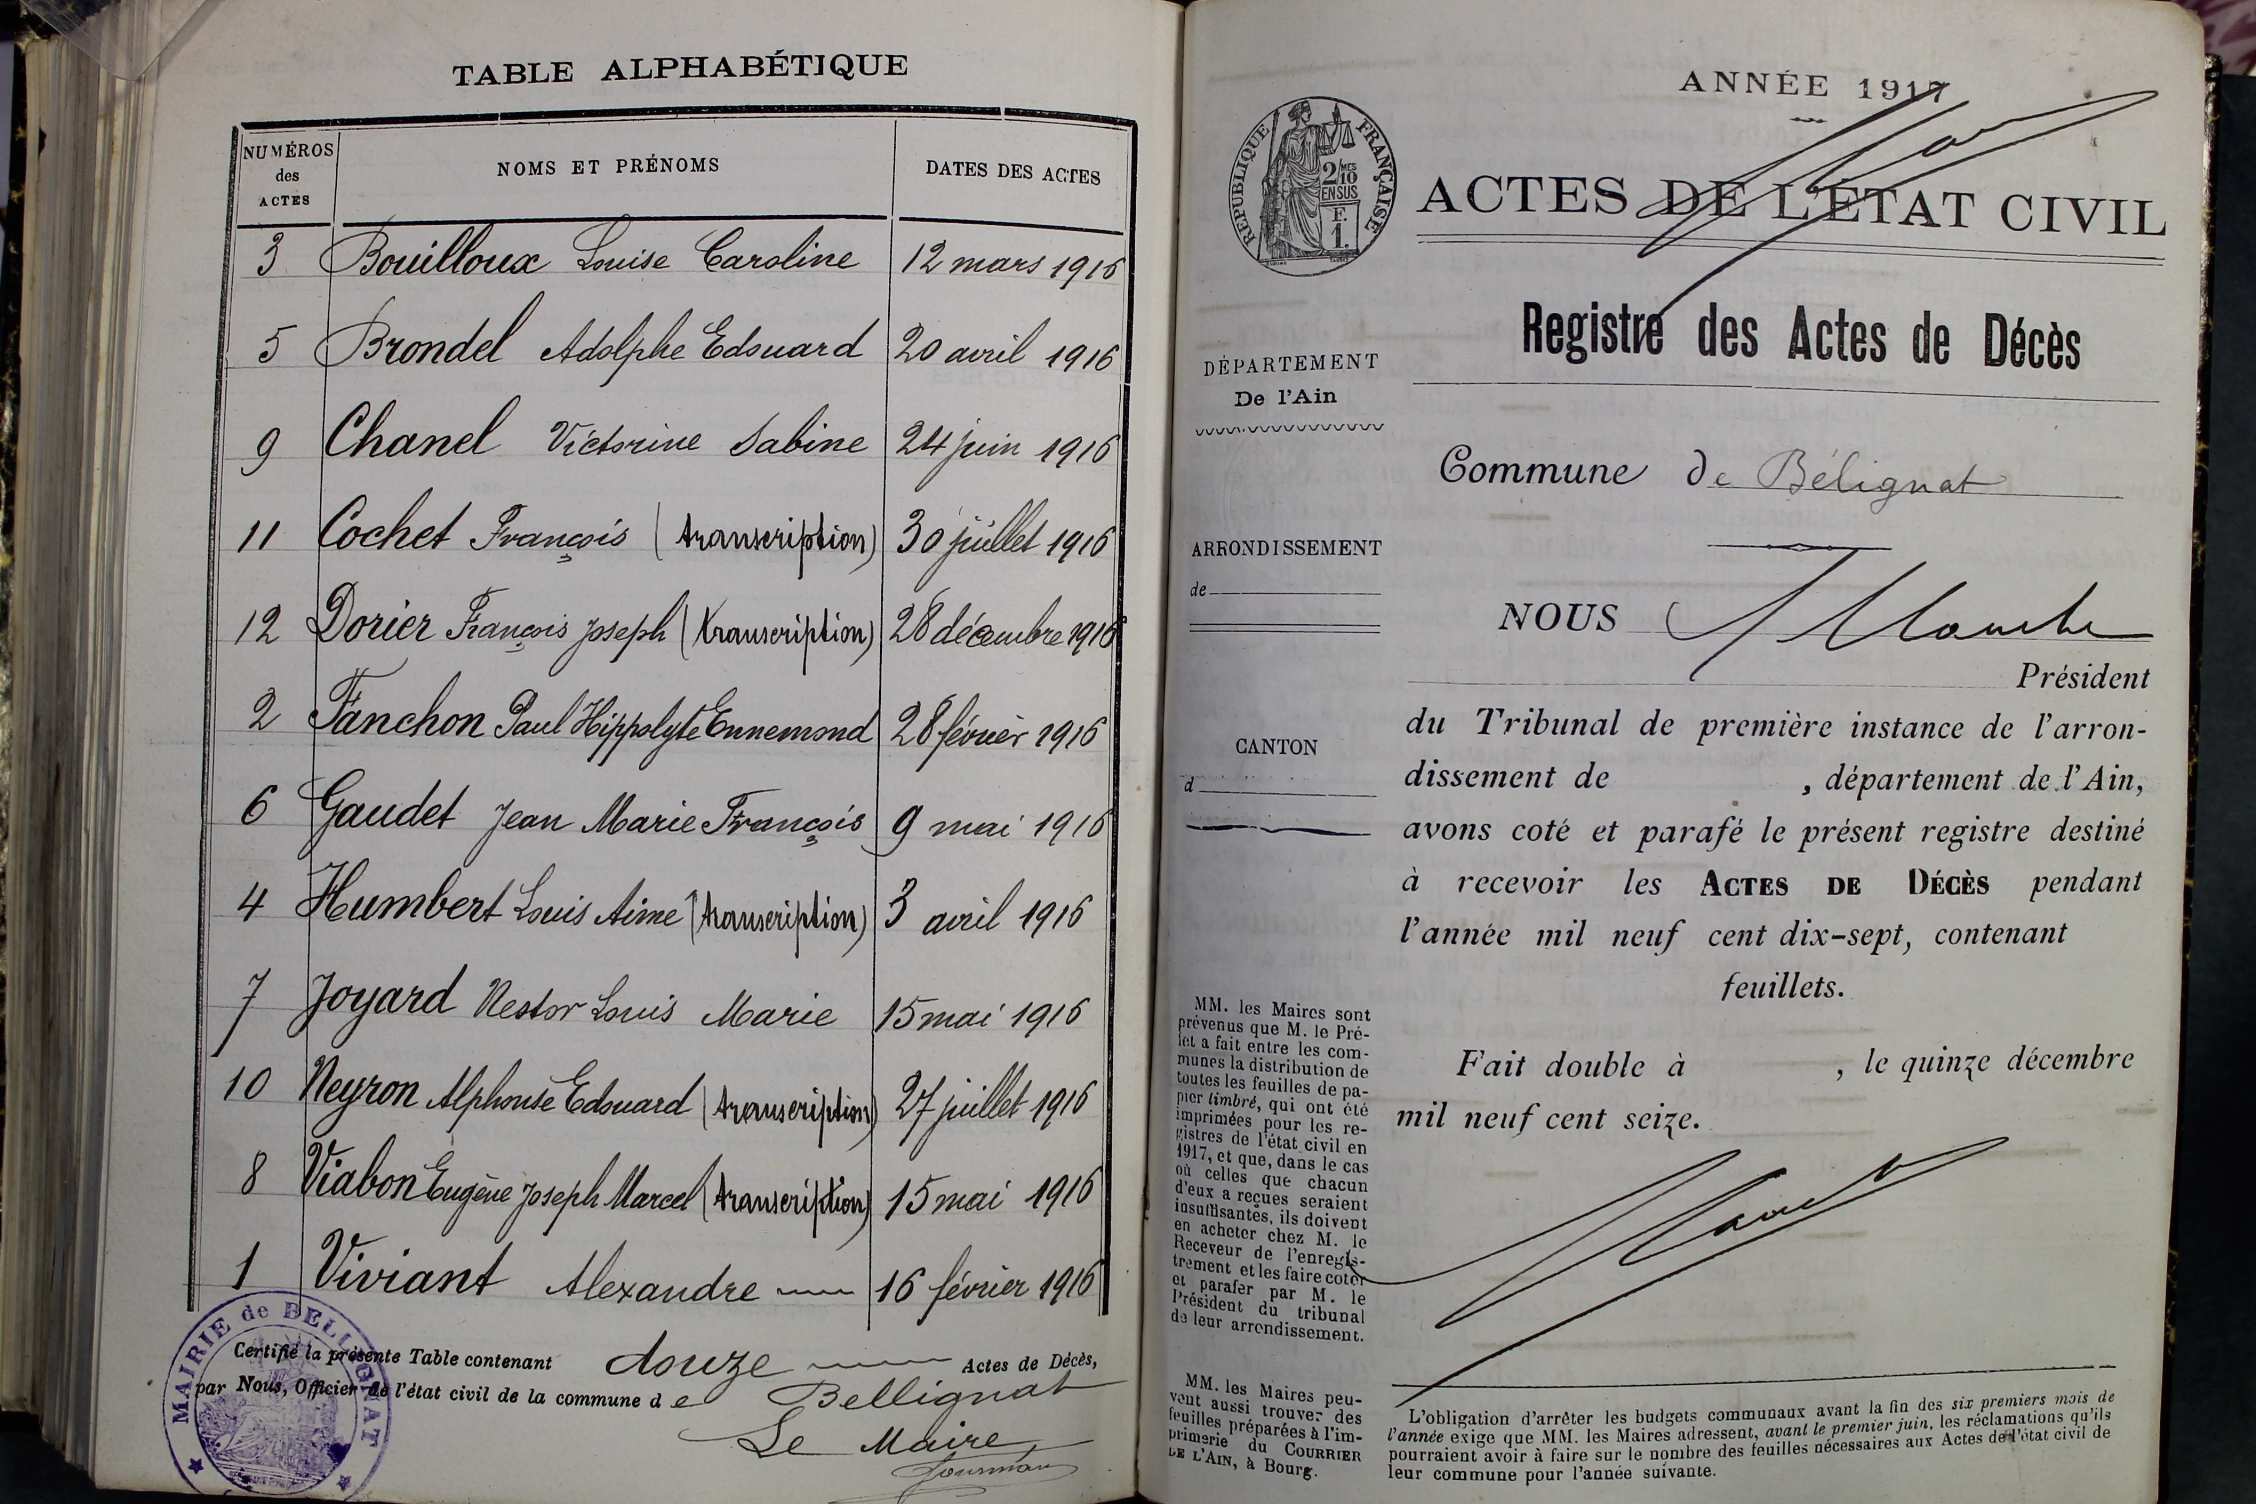 TABLE ALPHABÉTIQUE
NUMÉROS des ACTES NOMS ET PRÉNOMS DATES DES ACTES
3 Bouilloux Louise Caroline 12 mars 1916
5 Brondel Adolphe Edouard 20 avril 1916
9 Chanel Victorine Sabine 24 juin 1916
11 Cochet François (transcription) 30 juillet 1916
12 Dorier François Joseph (transcription) 28 décembre 1916
2 Fanchon Paul Hippolyte Ennemond 28 février 1916
6 Gaudet Jean Marie François 9 mai 1916
4 Humbert Louis Aimé (transcription) 3 avril 1916
7 Joyard Nestor Louis Marie 15 mai 1916
10 Neyron Alphonse Edouard (transcription) 27 juillet 1916
8 Viabon Eugène Joseph Marcel (transcription) 15 mai 1916
1 Viviant Alexandre 16 février 1916
Certifié la présente Table contenant douze Actes de Décès,
par Nous, Officier de l'état civil de la commune de Bellignat
Le Maire
MAIRIE de BELLIGNAT
ANNÉE 1917
RÉPUBLIQUE FRANÇAISE
2/MES
10
EN SUS
F.
1.
ACTES DE L'ÉTAT CIVIL
Registre des Actes de Décès
DÉPARTEMENT
De l'Ain
Commune de Bélignat
ARRONDISSEMENT
de
NOUS
Président
CANTON
d
du Tribunal de première instance de l'arron-
dissement de , département de l'Ain,
avons coté et parafé le présent registre destiné
à recevoir les ACTES DE DÉCÈS pendant
l'année mil neuf cent dix-sept, contenant
feuillets.
Fait double à , le quinze décembre
mil neuf cent seize.
MM. les Maires sont
prévenus que M. le Pré-
fet a fait entre les com-
munes la distribution de
toutes les feuilles de pa-
pier timbré, qui ont été
imprimées pour les re-
gistres de l'état civil en
1917, et que, dans le cas
où celles que chacun
d'eux a reçues seraient
insuffisantes, ils doivent
en acheter chez M. le
Receveur de l'enregis-
trement et les faire coter
et parafer par M. le
Président du tribunal
de leur arrondissement.
MM. les Maires peu-
vent aussi trouver des
feuilles préparées à l'im-
primerie du COURRIER
DE L'AIN, à Bourg.
L'obligation d'arrêter les budgets communaux avant la fin des six premiers mois de
l'année exige que MM. les Maires adressent, avant le premier juin, les réclamations qu'ils
pourraient avoir à faire sur le nombre des feuilles nécessaires aux Actes de l'état civil de
leur commune pour l'année suivante.